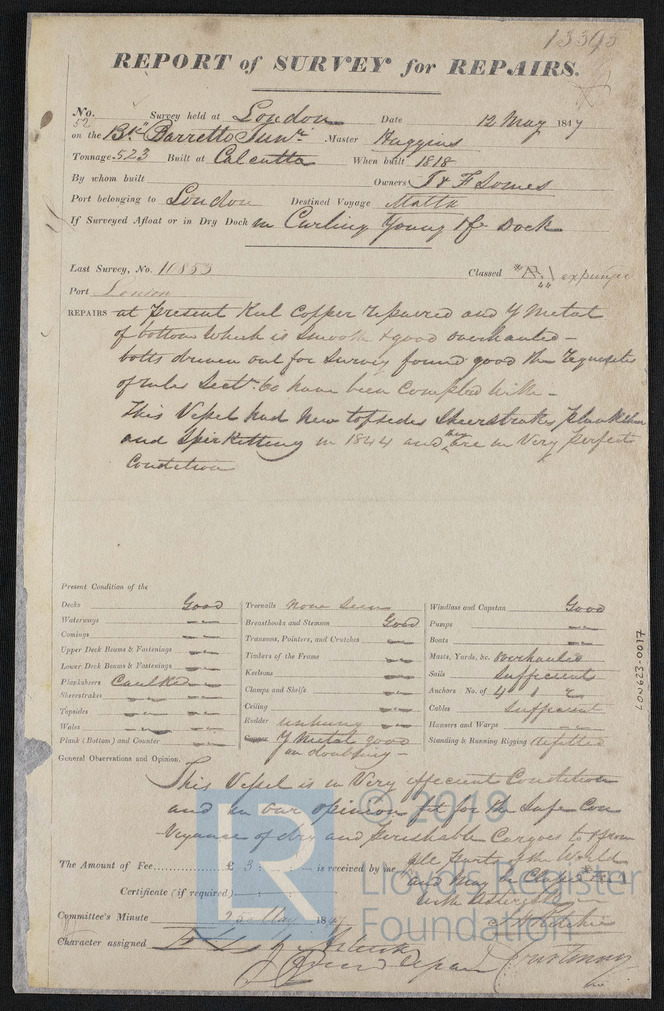 13393
REPORT of SURVEY for REPAIRS.
No. 52 Survey held at London Date 12 May 1847
on the Bk "Barretto Junr. Master Huggins
Tonnage 523 Built at Calcutta When built 1818
By whom built Owners T & F Somes
Port belonging to London Destined Voyage Malta
If Surveyed Afloat or in Dry Dock in Curling Young & Co Dock
Last Survey, No. 10853 Classed expunged
Port London
REPAIRS at Present Keel Copper repaired and Y Metal
of bottom which is smooth & good overhauled -
bolts driven out for survey found good the requisites
of rules Sectn. 60 have been complied with -
This Vessel had New topsides Sheerstrakes, Planksheer
and Spirketting in 1844 and they are in Very perfect
Condition
Present Condition of the
Decks Good
Waterways
Comings
Upper Deck Beams & Fastenings
Lower Deck Beams & Fastenings
Planksheers Caulked
Sheerstrakes
Topsides
Wales
Plank (Bottom) and Counter
Treenails None Seen
Breasthooks and Stemson Good
Transoms, Pointers, and Crutches
Timbers of the Frame
Keelsons
Clamps and Shelfs
Ceiling
Rudder unhung
Copper Y Metal good
on doubling -
Windlass and Capstan Good
Pumps
Boats
Masts, Yards, &c. overhauled
Sails Sufficient
Anchors No. of 4 1 2
Cables Sufficient
Hawsers and Warps
Standing & Running Rigging Refitted
General Observations and Opinion,
This Vessel is in Very efficient Condition
and in our opinion fit for the Safe Con
veyance of dry and perishable Cargoes to & from
all Parts of the World
and May be Classed
with Asterisk
The Amount of Fee £ 3 : : is received by me,
Certificate (if required)
Committee's Minute 25 May 1847
Character assigned
J H Ritchie
Courtenay
LON623-0017
© 2019
LR
Lloyd's Register
Foundation